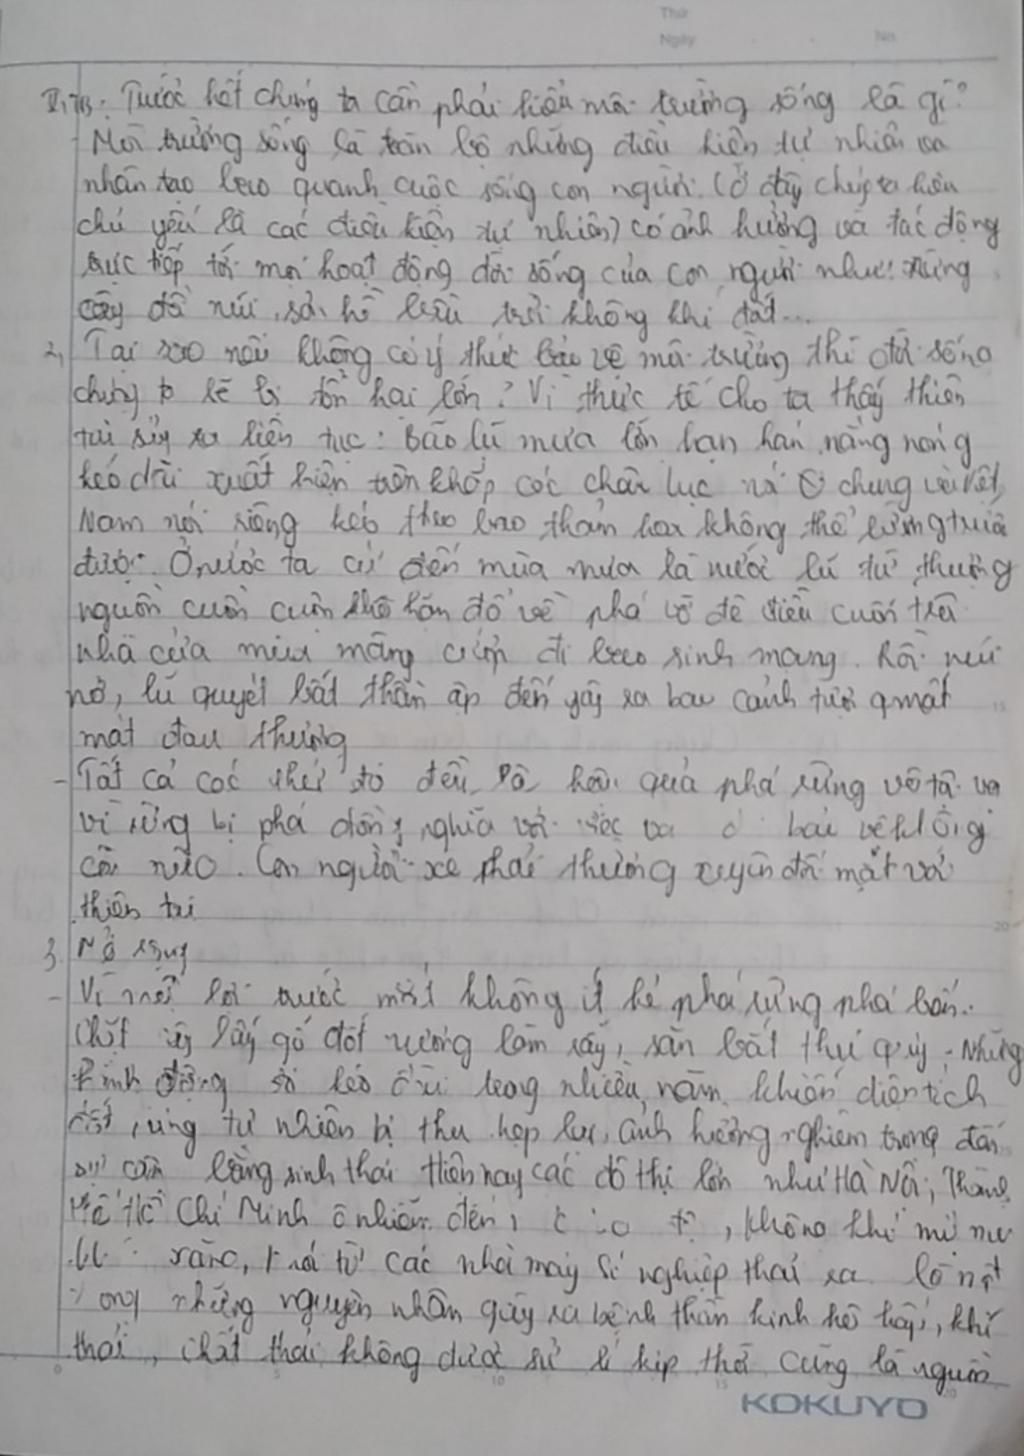 Thứ
Ngày No.
II, TB: Trước hết chúng ta cần phải hiểu môi trường sống là gì?
- Môi trường sống là toàn bộ những điều kiện tự nhiên và
nhân tạo bao quanh cuộc sống con người (ở đây chúng ta hiểu
chủ yếu là các điều kiện tự nhiên) có ảnh hưởng và tác động
trực tiếp tới mọi hoạt động đời sống của con người như: rừng
cây đồi núi, hồ trời không khí đất...
2, Tại sao nếu không có ý thức bảo vệ môi trường thì đời sống
chúng ta sẽ bị tổn hại lớn? Vì thực tế cho ta thấy thiên
tai xảy ra liên tục: Bão lũ mưa lớn hạn hán nắng nóng
kéo dài xuất hiện trên khắp các châu lục nói chung và Việt
Nam nói riêng kéo theo bao thảm họa không thể lường trước
được. Ở nước ta cứ đến mùa mưa là nước lũ từ thượng
nguồn cuồn cuộn đổ về phá vỡ đê điều cuốn trôi
nhà cửa mùa màng cướp đi bao sinh mạng. Rồi núi
nở, lũ quyét bất thần ập đến gây ra bao cảnh tượng mất
mát đau thương
- Tất cả các thứ đó đều là hậu quả phá rừng vô tội vạ
vì rừng bị phá đồng nghĩa với việc bảo vệ
còn nữa. Con người phải thường xuyên đối mặt với
thiên tai
3. Mở rộng
- Vì mối lợi trước mắt không ít kẻ phá rừng phá bốn..
Chặt cây lấy gỗ đốt rương làm rẫy, săn bắt thú quý. Những
hành động kéo dài trong nhiều năm khiến diện tích
đất rừng tự nhiên bị thu hẹp lại, ảnh hưởng nghiêm trọng đến
sự cân bằng sinh thái Hiện nay các đô thị lớn như Hà Nội, Thành
Phố Hồ Chí Minh ô nhiễm đến, không khí mù
xăng, khói từ các nhà máy xí nghiệp thải ra là một
trong những nguyên nhân gây ra bệnh thần kinh hô hấp, khí
thải, chất thải không được sử lí kịp thời cũng là nguồn
KOKUYO